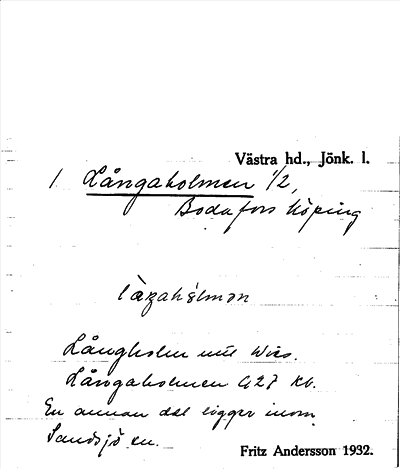 Västra hd., Jönk. l.
1 Långaholmen 1/2,
Bodafors köping
Långholm
Långaholmen G27 Kb.
En annan del ligger inom
Sandsjö sn.
Fritz Andersson 1932.